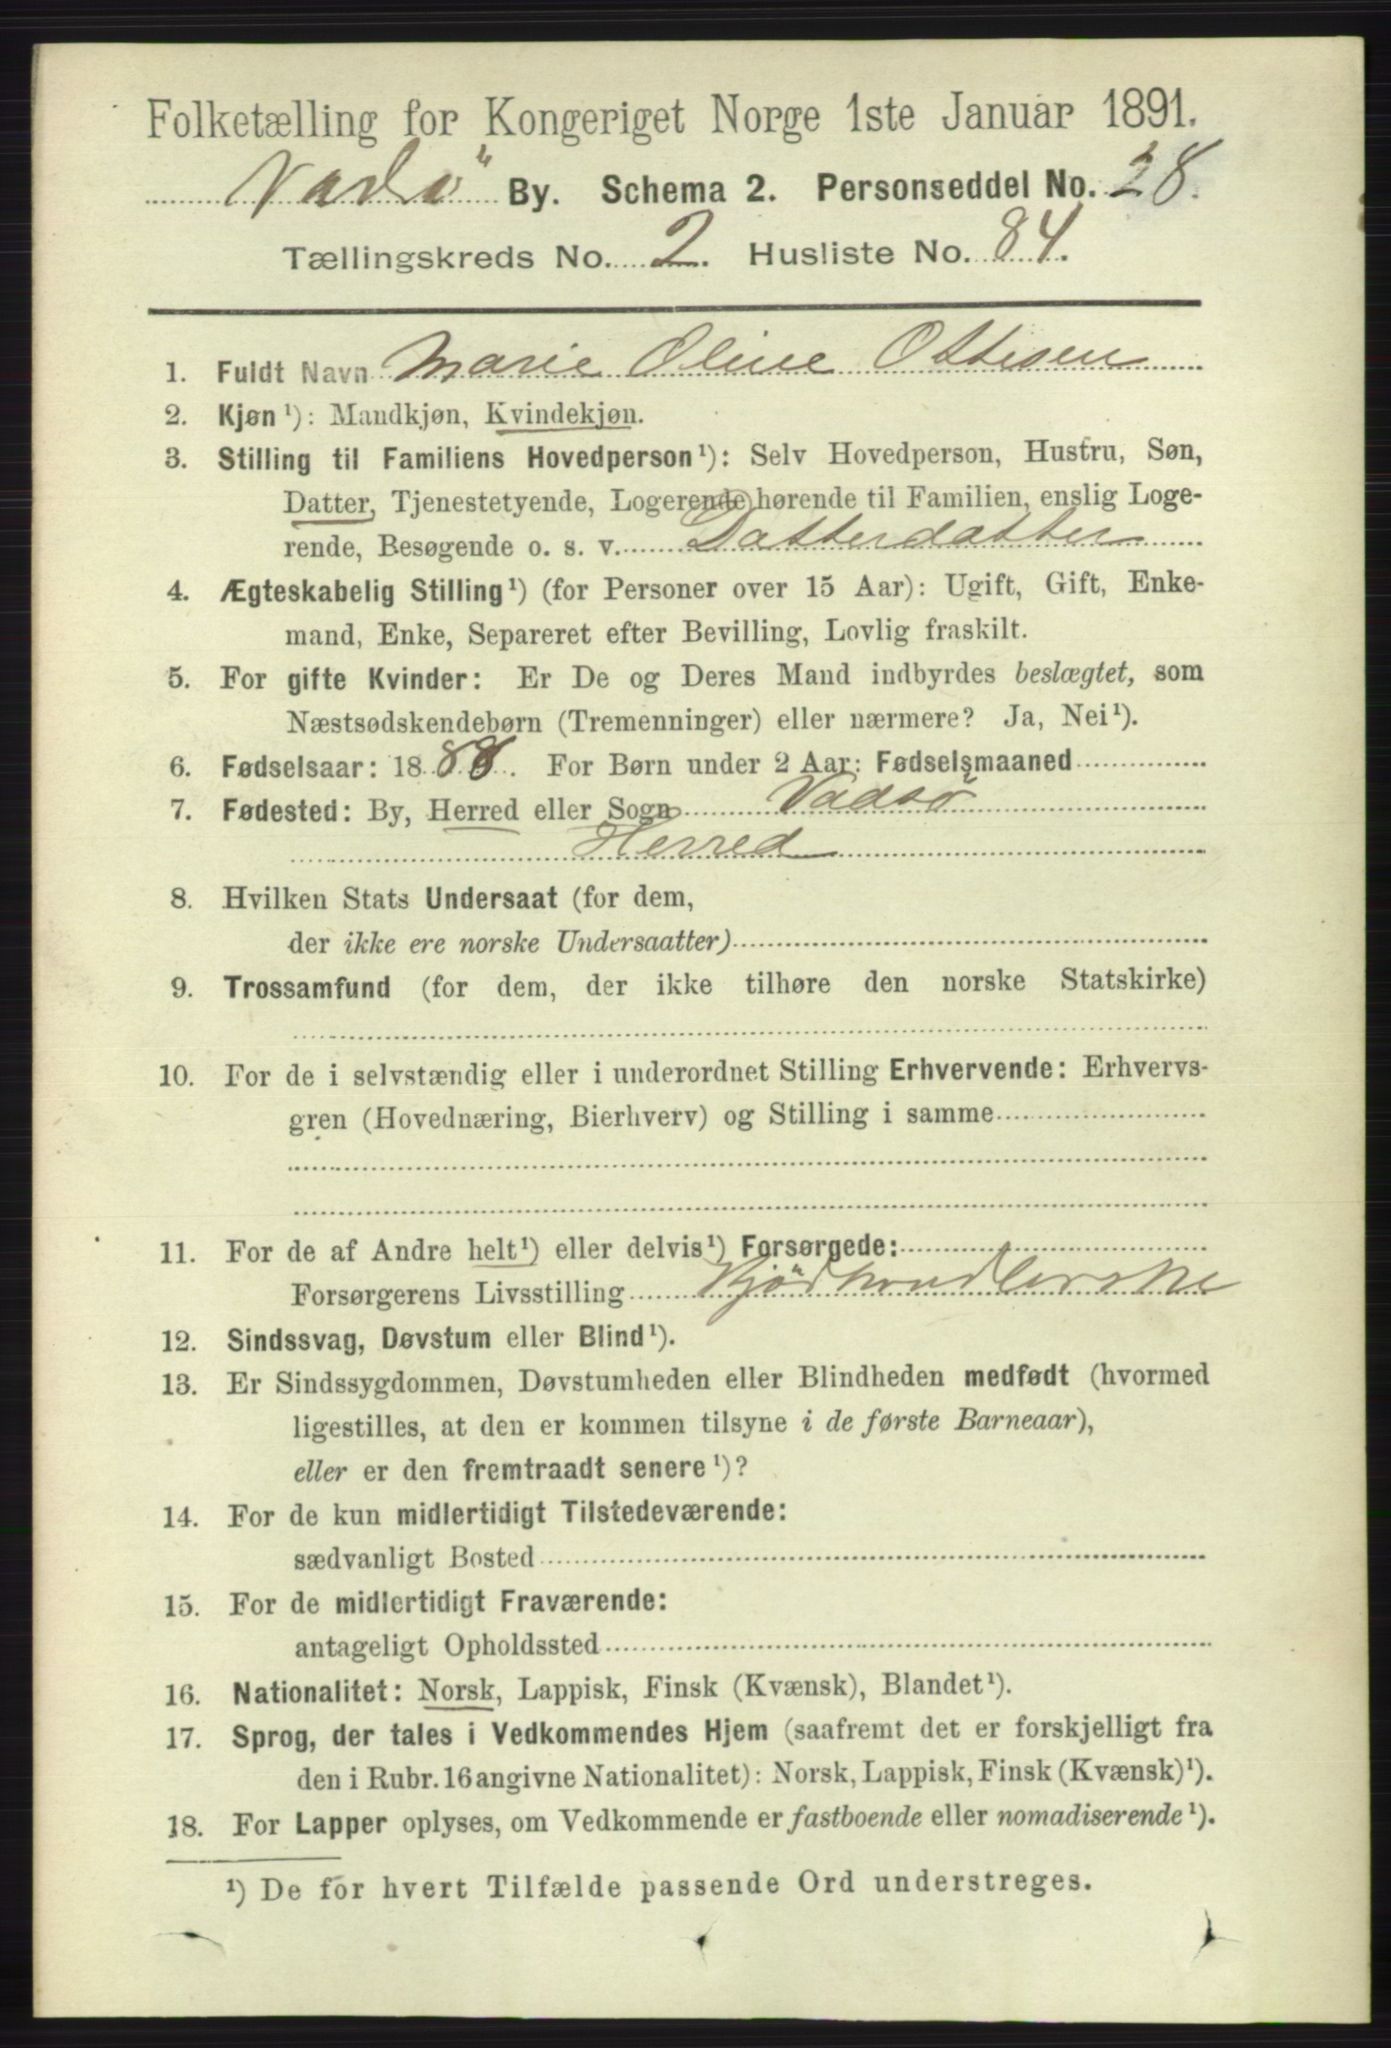 Folketælling for Kongeriget Norge 1ste Januar 1891.
Vadsö By. Schema 2. Personseddel No. 28.
Tællingskreds No. 2. Husliste No. 84.
1. Fuldt Navn Marie Oline Ottesen
2. Kjøn¹): Mandkjøn, Kvindekjøn.
3. Stilling til Familiens Hovedperson¹): Selv Hovedperson, Hustru, Søn,
Datter, Tjenestetyende, Logerende hørende til Familien, enslig Loge-
rende, Besøgende o. s. v. Datterdatter
4. Ægteskabelig Stilling¹) (for Personer over 15 Aar): Ugift, Gift, Enke-
mand, Enke, Separeret efter Bevilling, Lovlig fraskilt.
5. For gifte Kvinder: Er De og Deres Mand indbyrdes beslægtet, som
Næstsødskendebørn (Tremenninger) eller nærmere? Ja, Nei¹).
6. Fødselsaar: 1888. For Børn under 2 Aar: Fødselsmaaned
7. Fødested: By, Herred eller Sogn Vadsö
Herred
8. Hvilken Stats Undersaat (for dem,
der ikke ere norske Undersaatter)
9. Trossamfund (for dem, der ikke tilhøre den norske Statskirke)
10. For de i selvstændig eller i underordnet Stilling Erhvervende: Erhvervs-
gren (Hovednæring, Bierhverv) og Stilling i samme
11. For de af Andre helt¹) eller delvis¹) Forsørgede:
Forsørgerens Livsstilling Kjödhandlerske
12. Sindssvag, Døvstum eller Blind¹).
13. Er Sindssygdommen, Døvstumheden eller Blindheden medfødt (hvormed
ligestilles, at den er kommen tilsyne i de første Barneaar),
eller er den fremtraadt senere¹)?
14. For de kun midlertidigt Tilstedeværende:
sædvanligt Bosted
15. For de midlertidigt Fraværende:
antageligt Opholdssted
16. Nationalitet: Norsk, Lappisk, Finsk (Kvænsk), Blandet¹).
17. Sprog, der tales i Vedkommendes Hjem (saafremt det er forskjelligt fra
den i Rubr. 16 angivne Nationalitet): Norsk, Lappisk, Finsk (Kvænsk)¹).
18. For Lapper oplyses, om Vedkommende er fastboende eller nomadiserende¹).
¹) De for hvert Tilfælde passende Ord understreges.